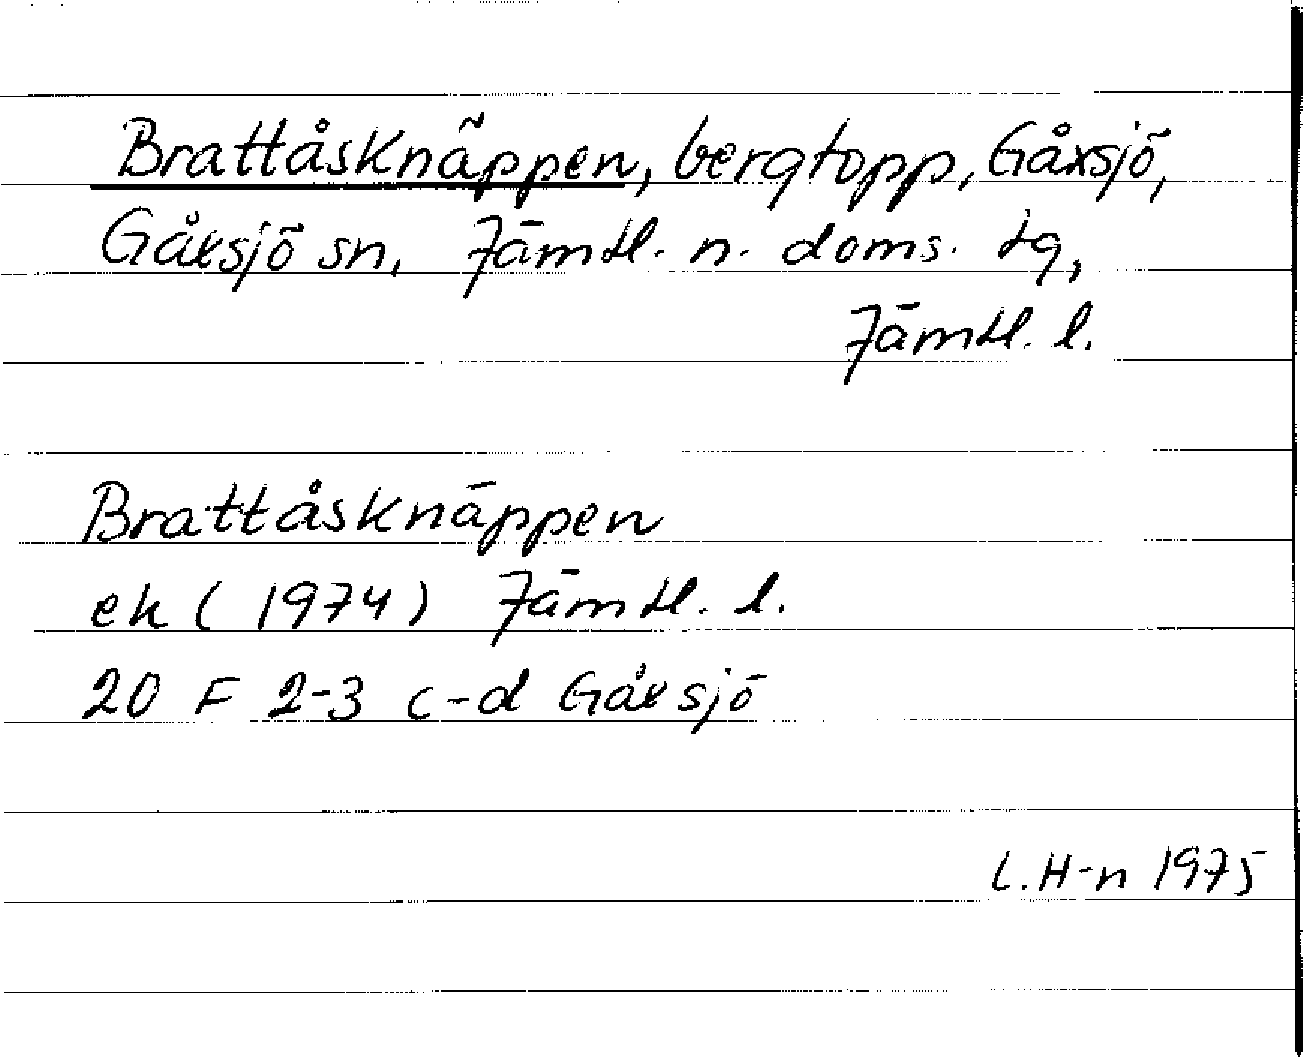 Brattåsknäppen, bergtopp, Gåxsjö,
Gåxsjö sn, Jämtl. n. doms. tg,
Jämtl. l.
Brattåsknäppen
ek (1974) Jämtl. l.
20 F 2-3 c-d Gåxsjö
L. H-n 1975